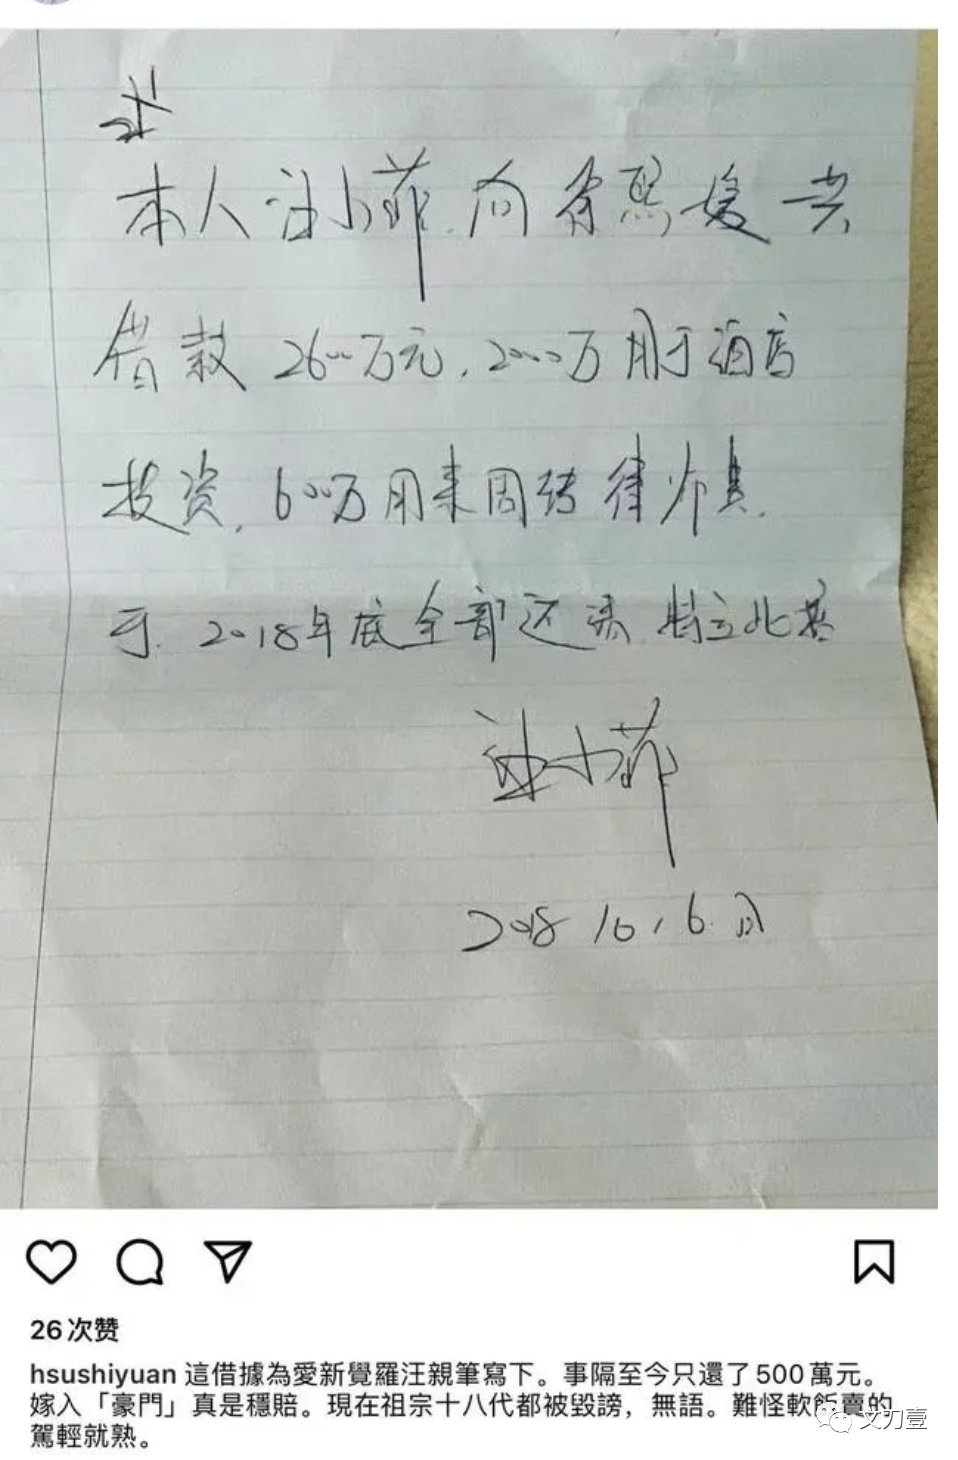 本人汪小菲.向徐熙媛共
借款2600万元,2000万用于酒店
投资,600万用来周转律师费.
于.2018年底全部还清.特立此据
汪小菲
2018 10,6.
26次赞
hsushiyuan 這借據為愛新覺羅汪親筆寫下。事隔至今只還了500萬元。
嫁入「豪門」真是穩賠。現在祖宗十八代都被毀謗,無語。難怪軟飯賣的
駕輕就熟。
文刀壹